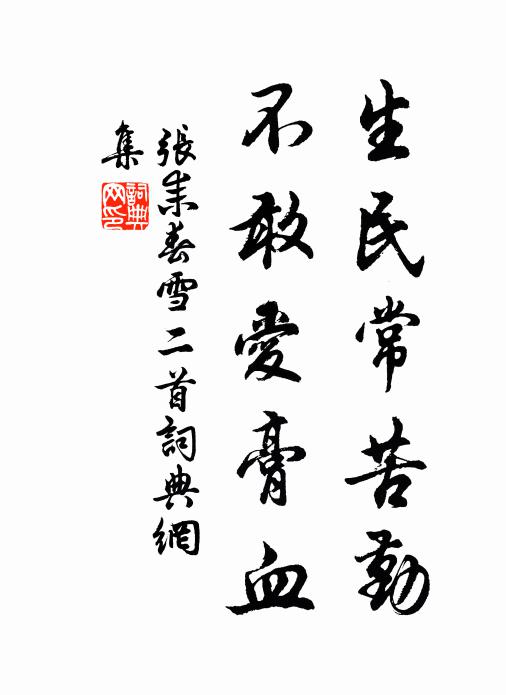 生民常苦勤
不敢愛膏血
張耒春雪二首詞典網
集
詞典網印